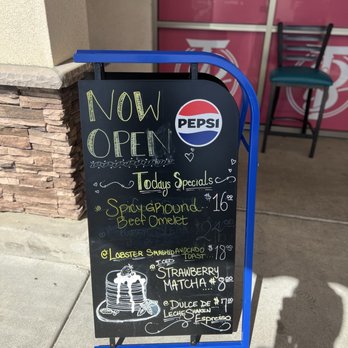 NOW
OPEN
PEPSI
Todays Specials
Spicy Ground $16
Beef Omelet
@ Lobster Smashed Avocado $18
Toast
@ Iced
Strawberry
Matcha .... $8.00
@ Dulce de
Leche Shaken
Espresso